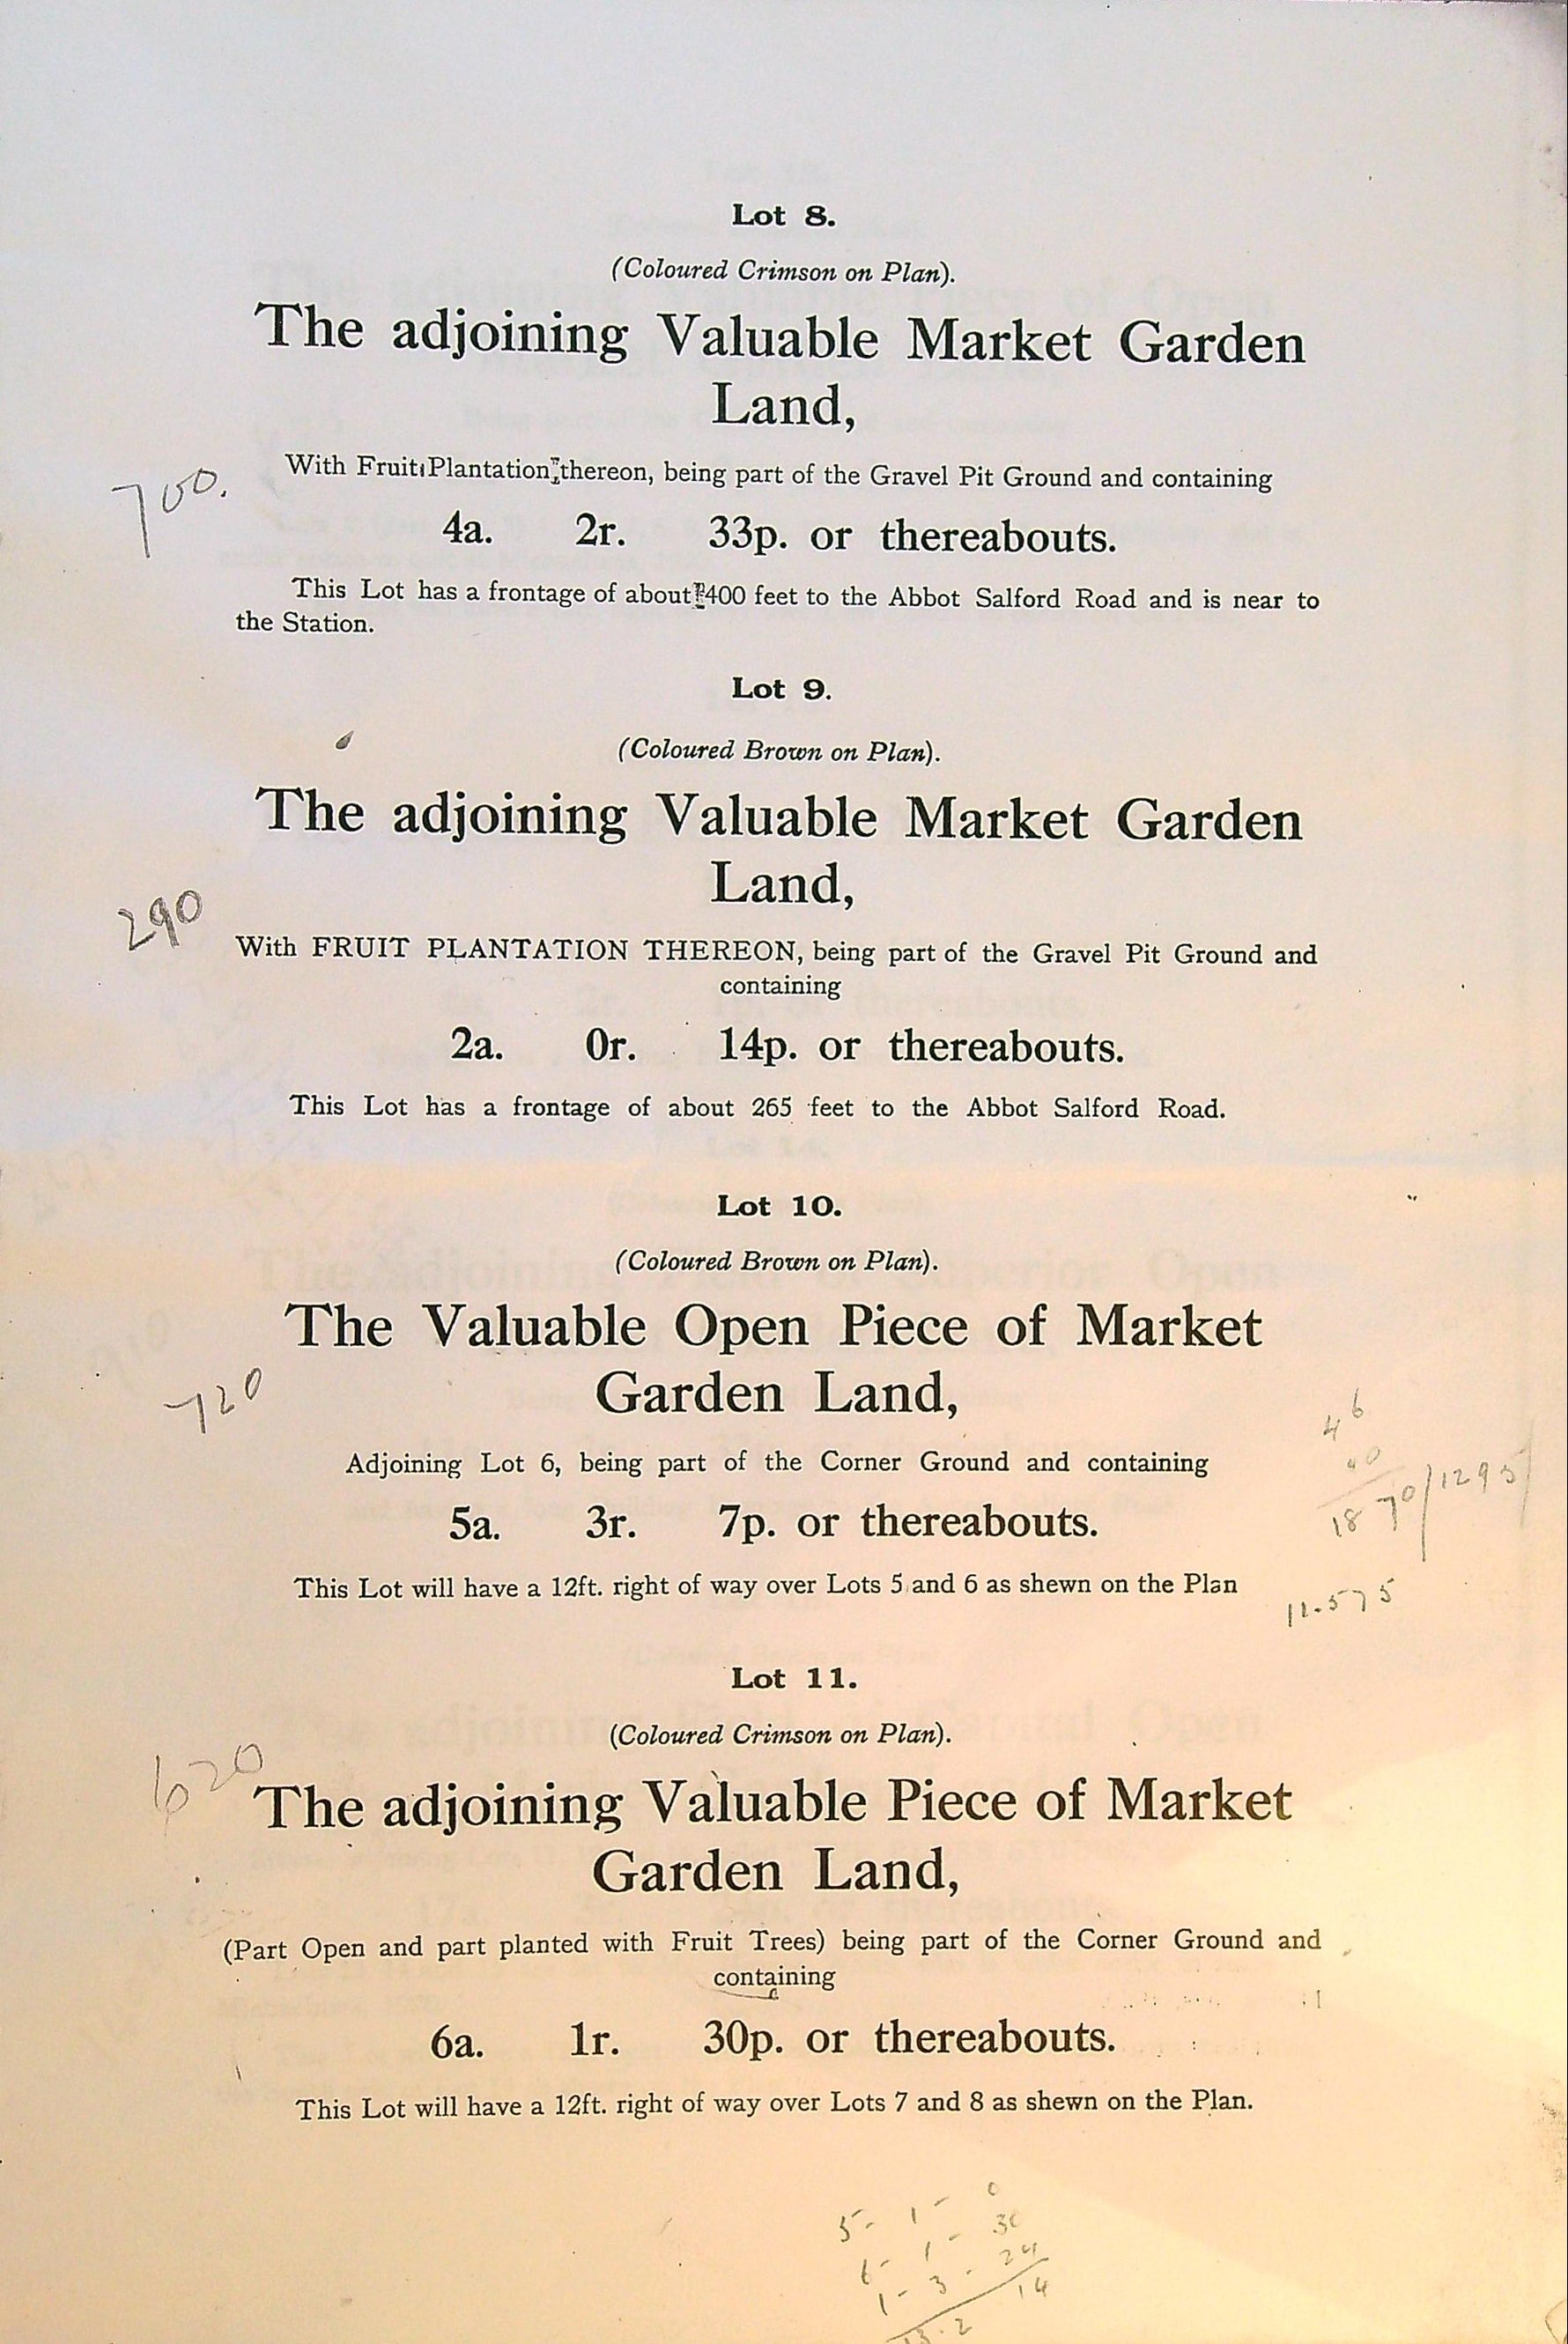 Lot 8.
(Coloured Crimson on Plan).
The adjoining Valuable Market Garden
Land,
With Fruit Plantation thereon, being part of the Gravel Pit Ground and containing
700.
4a. 2r. 33p. or thereabouts.
This Lot has a frontage of about 400 feet to the Abbot Salford Road and is near to
the Station.
Lot 9.
(Coloured Brown on Plan).
The adjoining Valuable Market Garden
Land,
290
With FRUIT PLANTATION THEREON, being part of the Gravel Pit Ground and
containing
2a. 0r. 14p. or thereabouts.
This Lot has a frontage of about 265 feet to the Abbot Salford Road.
Lot 10.
(Coloured Brown on Plan).
The Valuable Open Piece of Market
Garden Land,
720
46
Adjoining Lot 6, being part of the Corner Ground and containing
18 70/1295
5a. 3r. 7p. or thereabouts.
This Lot will have a 12ft. right of way over Lots 5 and 6 as shewn on the Plan
11.575
Lot 11.
(Coloured Crimson on Plan).
620
The adjoining Valuable Piece of Market
Garden Land,
(Part Open and part planted with Fruit Trees) being part of the Corner Ground and
containing
6a. 1r. 30p. or thereabouts.
This Lot will have a 12ft. right of way over Lots 7 and 8 as shewn on the Plan.
5 - 1 - 0
6 - 1 - 30
1 - 3 - 24
13 . 2 14